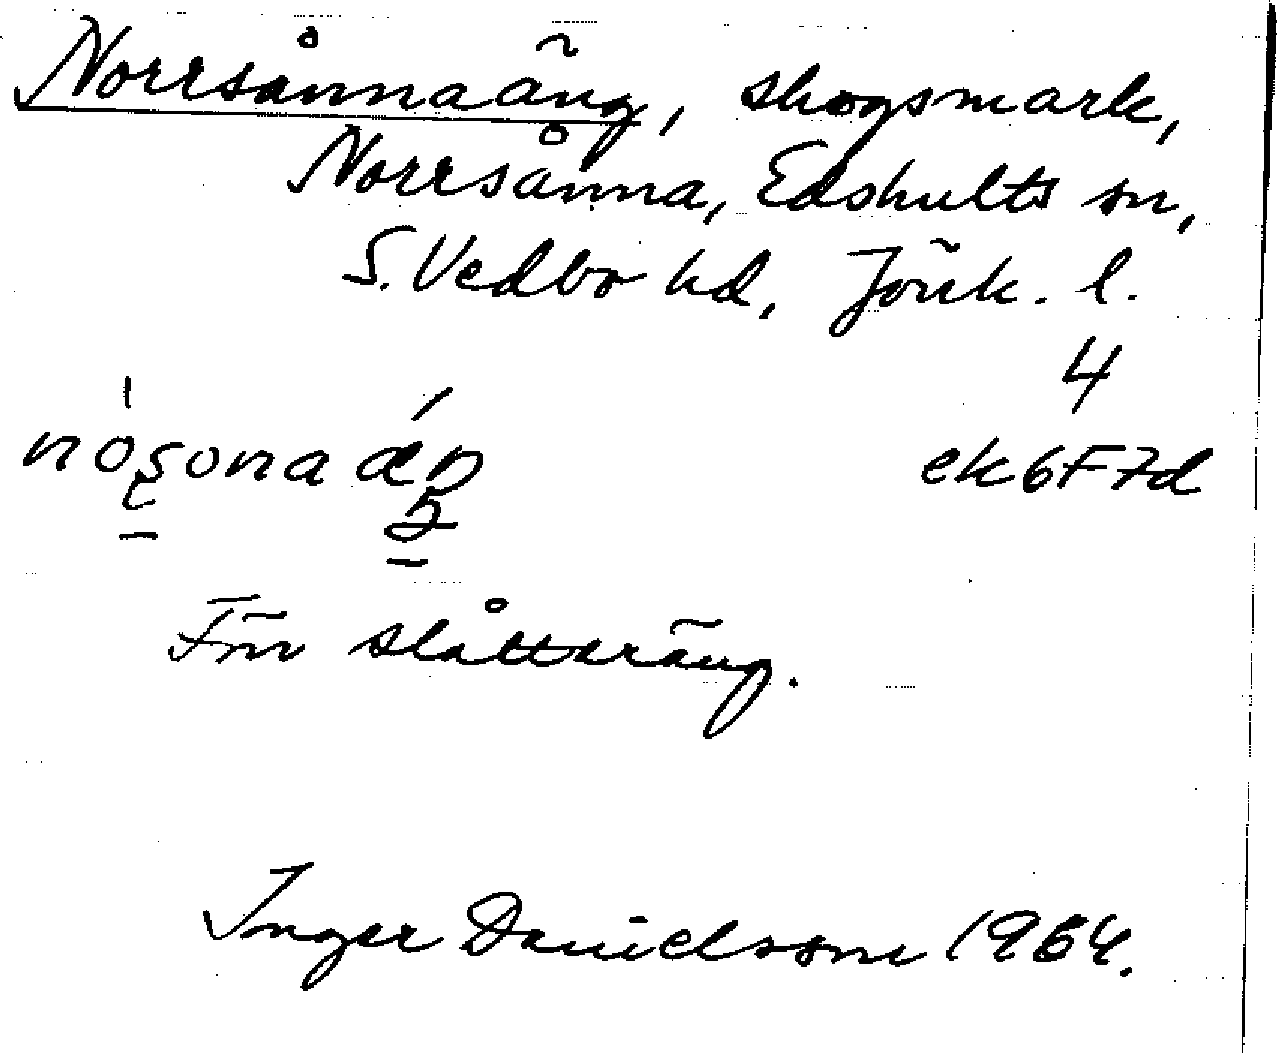 Norrsånnaäng, skogsmark,
Norrsånna, Edshults sn,
S. Vedbo hd, Jönk. l.
4
ek6F7d
Förr slåtteräng.
Inger Danielsson 1964.